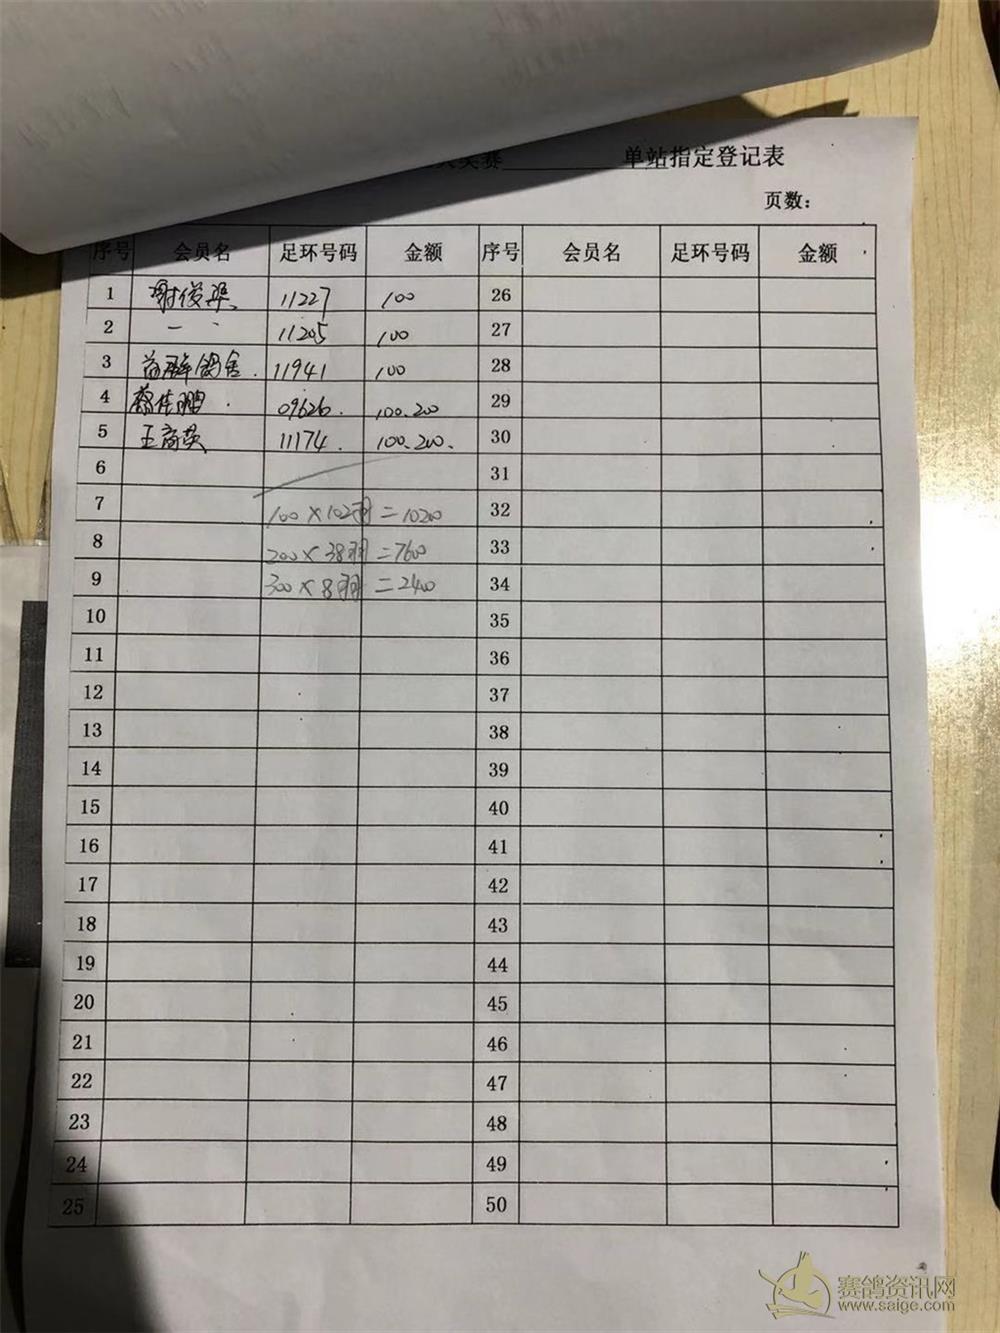 大奖赛 单站指定登记表
页数：
序号 会员名 足环号码 金额 序号 会员名 足环号码 金额
1 谢俊 11227 100 26
2 一 、 11205 100 27
3 鸽舍. 11941 100 28
4 蔡佳鹏. 09626. 100.20 29
5 王商英 11174. 100.200. 30
6 31
7 100×102羽=10200 32
8 200×38羽=7600 33
9 300×8羽=2400 34
10 35
11 36
12 37
13 38
14 39
15 40
16 41
17 42
18 43
19 44
20 45
21 46
22 47
23 48
24 49
25 50
赛鸽资讯网
www.saige.com